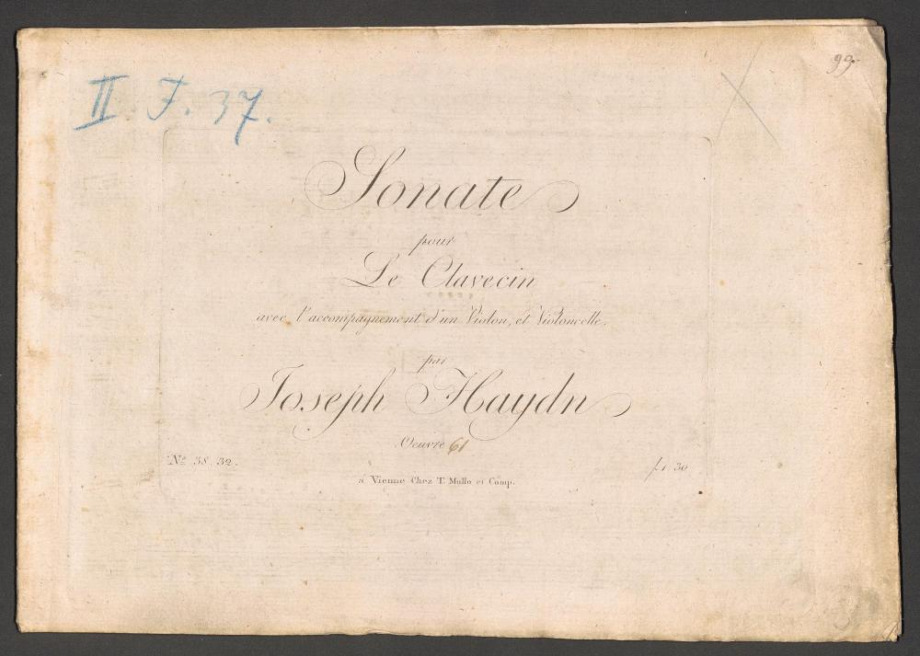 99
II. J. 37.
Sonate
pour
Le Clavecin
avec l'accompagnement d'un Violon, et Violoncelle.
par
Joseph Haydn
Oeuvre 61
No. 38. 32. f 1 30
à Vienne Chez T. Mollo et Comp.